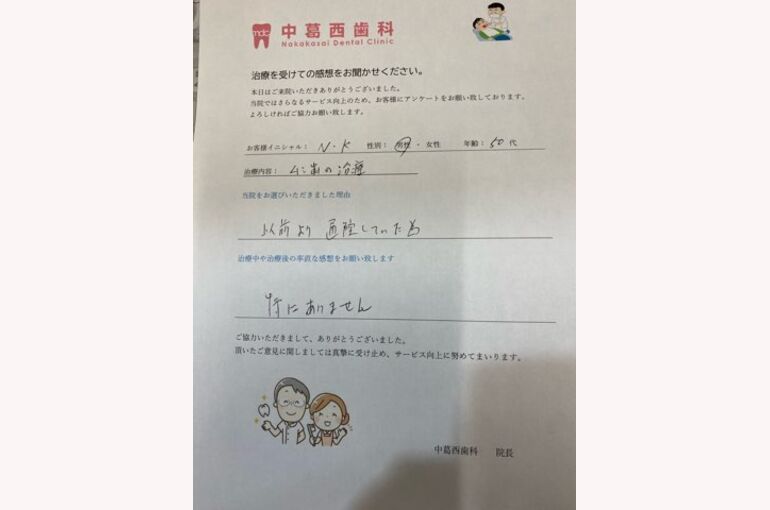 mdc 中葛西歯科
Nakakasai Dental Clinic
治療を受けての感想をお聞かせください。
本日はご来院いただきありがとうございました。
当院ではさらなるサービス向上のため、お客様にアンケートをお願い致しております。
よろしければご協力お願い致します。
お客様イニシャル： N・K 性別： 男性 ・ 女性 年齢： 50 代
治療内容： ムシ歯の治療
当院をお選びいただきました理由
以前より 通院していた為
治療中や治療後の率直な感想をお願い致します
特にありません
ご協力いただきまして、ありがとうございました。
頂いたご意見に関しましては真摯に受け止め、サービス向上に努めてまいります。
中葛西歯科 院長